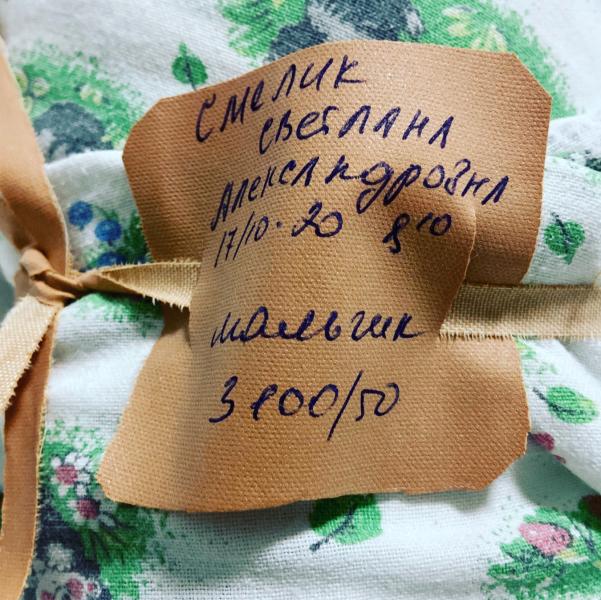 Смелик
Светлана
Александровна
17/10.20 8¹⁰
мальчик
3800/50